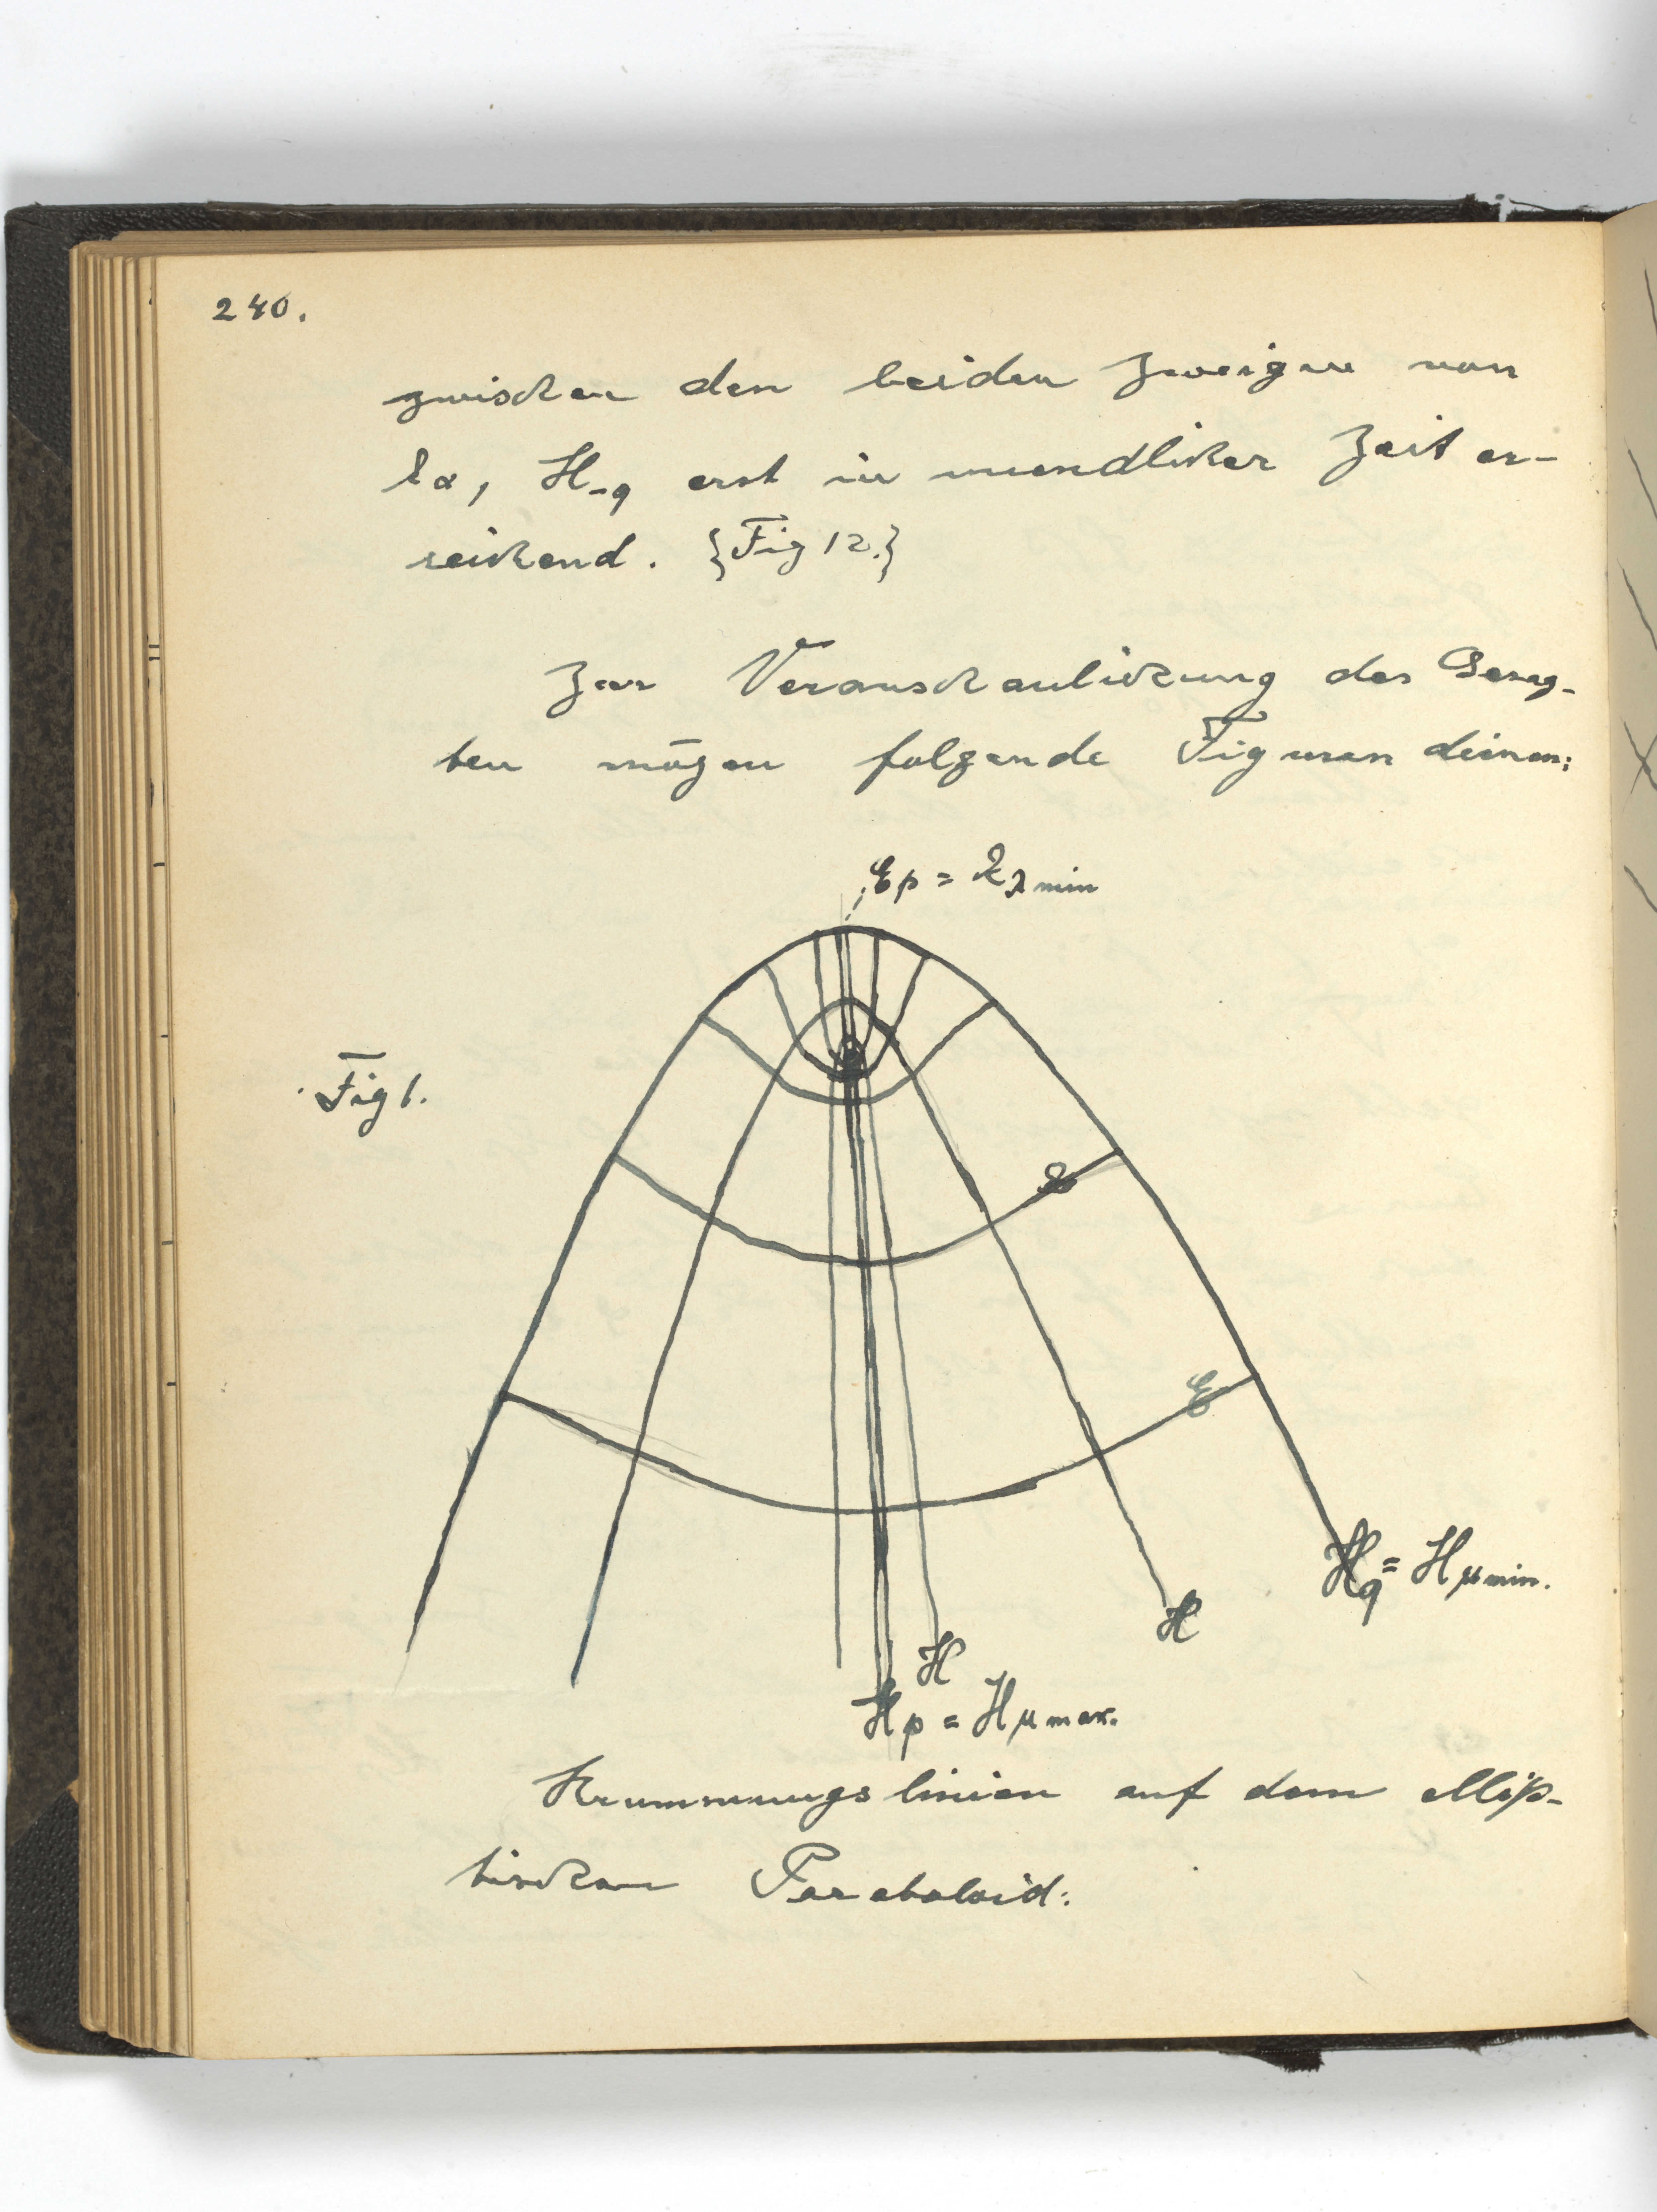 240.
zwischen den beiden Zweigen von
lα, H-q erst in unendlicher Zeit er-
reichend. {Fig 12.}
Zur Veranschaulichung des Gesag-
ten mögen folgende Figuren deinen:
Ep = Eλ min
Fig 1.
E
E
Hq = Hμ min.
H
H
Hp = Hμ max.
Krummungslinien auf dem ellip-
tischen Paraboloid: